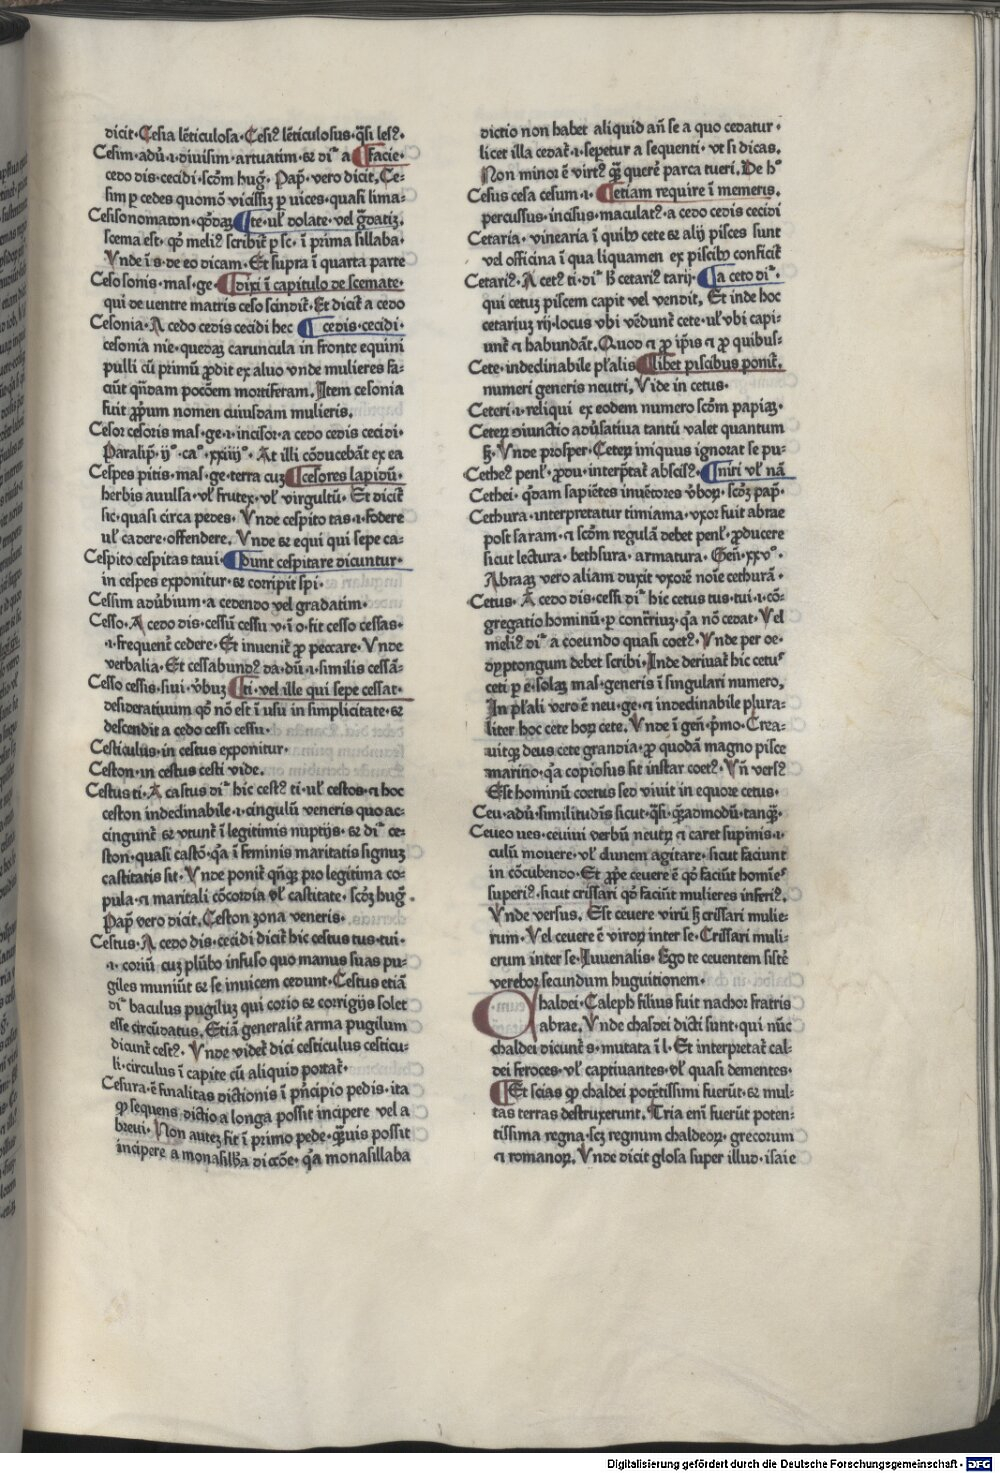 dicit·Cesia lēticulosa·Cesiꝰ lēticulosus·q̄si lesꝰ·
Cesim·adū·i·diuisim·artuatim·⁊ di͞ a ¶facie·
cedo dis·cecidi·scōm hug̅. Pap̅. vero dicit.Ce⸗
sim p cedes quomō viciss̄ ꝑ vices·quasi lima⸗
Cesisonomaton·qd̄aꝫ ¶te·ul̓ dolate·vel g̅datīꝫ.
scema est·qd̓ meliꝰ scribit̄ p sc·ī prima sillaba·
Vnde ī s·de eo dicam·Et supra ī quarta parte
Ceso sonis·mas·ge·¶dixi ī capitulo de scemate·
qui de uentre matris ceso scīndit̄·Et dicit̄ a cedo
Cesonia·A cedo cedis cecidi hec ¶cedis·cecidi·
cesonia nie·quedaꝫ caruncula in fronte equini
pulli cū primū ꝓdit ex aluo vnde mulieres fa⸗
ciūt qn̄dam pocōem mortiferam. Item cesonia
fuit ꝓpꝛium nomen cuiusdam mulieris.
Cesor cesoris mas·ge·i·incisor·a cedo cedis cecidi·
Paralip̄·ij°·ca°·xxiiij°·At illi cōducebāt ex ea
Cespes pitis·mas·ge·terra cuꝫ ¶cesores lapidū·
herbis auulsa·vl̓ frutex·vl̓ virgultū·Et dicit̄
sic·quasi circa pedes·Vnde cespito tas·i·fodere
ul̓ cadere·offendere.Vnde ⁊ equi qui sepe ca⸗
Cespito cespitas taui·¶dunt cespitare dicuntur·
in cespes exponitur·⁊ corripit spi·
Cessim aduerbium·a cedendo vel gradatim·
Cesso·A cedo dis·cessū cessu v·ī o·fit cesso cessas·
·i·frequent̄ cedere·Et inuenit̄ ꝓ peccare·Vnde
verbalia·Et cessabundꝰ da·dū·i·similis cessā⸗
Cesso cessis·siui·v̓buꝫ ¶ti·vel ille qui sepe cessat·
desideratiuum qd̓ nō est ī usu in simplicitate·⁊
descendit a cedo cessi cessu·
Cesticulus·in cestus exponitur·
Ceston·in cestus cesti vide.
Cestus ti·A castus di͞ hic cestꝰ ti·ul̓ cestos·⁊ hoc
ceston indeclinabile·i·cingulū veneris quo ac⸗
cingunt̄ ⁊ vtunt̄ ī legitimis nuptijs·⁊ di͞ ce⸗
ston·quasi castō·q̓a ī feminis maritatis signuꝫ
castitatis sit·Vnde ponit̄ qn̄qꝫ pro legitima co⸗
pula·⁊ maritali cōcordia vl̓ castitate·scōꝫ hug̅·
Pap̅ vero dicit.Ceston zona veneris·
Cestus·A cedo dis·cecidi dicit̄ hic cestus tus·tui·
·i·coriū cuꝫ plūbo infuso quo manus suas pu⸗
giles muniūt ⁊ se inuicem cedunt·Cestus etiā
di͞ baculus pugiluꝫ qui corio ⁊ corrigijs solet
esse circūdatus·Etiā generalit̄ arma pugilum
dicunt̄ cestꝰ·Vnde videt̄ dici cesticulus cesticu⸗
li·circulus ī capite cū aliquid portat̄·
Cesura·ē finalitas dictionis ī pn̄cipio pedis·ita
qꝫ sequens dictio a longa possit incipere vel a
breui·Non auteꝫ fit ī primo pede·q̄uis possit
incipere a monasillb̄a diccōe·q̓a monasillaba
dictio non habet aliquid añ se a quo cedatur·
licet illa cedat̄·i·sepetur a sequenti·vt si dicas.
Non minor ē virtꝰ q̄ꝫ querē parca tueri. De h°
Cesus cesa cesum·i·¶etiam require ī memeris·
percussus·incisus·maculatꝰ·a cedo cedis cecidi
Cetaria·vinearia ī quibꝰ cete ⁊ alij pisces sunt
vel officina ī qua liquamen ex piscibꝰ conficit̄
Cetariꝰ·A cetꝰ ti·di͞ h̓ cetariꝰ tarij·¶a ceto di͞·
qui cetuꝫ piscem capit vel vendit. Et inde hoc
cetariuꝫ rij·locus vbi vēdunt̄ cete·ul̓ vbi capi⸗
unt̄ ⁊ habundāt.Quod ⁊ ꝓ ip̄is ⁊ ꝓ quibus⸗
Cete·indeclinabile pl̓alis ¶libet piscibus ponit̄.
numeri generis neutri. Vide in cetus·
Ceteri·i·reliqui ex eodem numero scōm papiaꝫ·
Ceteꝝ diunctio adūsatiua tantū valet quantum
sꝫ.Vnde prosper·Ceteꝝ iniquus ignorat se pu⸗
Cetheꝰ penl̓·ꝓdu·interp̄tat̄ abscisꝰ·¶niri vl̓ nā
Cethei·qd̄am sapiētes inuētores v̓boꝝ·scōꝫ pap̅·
Cethura·interpretatur timiama·vxor fuit abrae
post saram·⁊ scōm regulā debet penl̓·ꝓducere
sicut lectura·bethsura·armatura·Geñ·xxv°·
Abraaꝫ vero aliam duxit vxorē noīe cethurā·
Cetus·A cedo dis·cessi di͞ hic cetus tus·tui·i·cō⸗
gregatio hominū·ꝑ contr̄iuꝫ·q̓a nō cedat·Vel
meliꝰ di͞ a coeundo quasi coetꝰ·Vnde per oe·
dyptongum debet scribi·Inde deriuat̄ hic cetus
ceti p e·solaꝫ mas·generis ī singulari numero.
In pl̓ali vero ē neu·ge·⁊ indeclinabile plura⸗
liter hoc cete hoꝝ cete.Vnde ī geñ·p̄mo·Crea⸗
uitqꝫ deus cete grandia·ꝓ quodā magno pisce
marino·q̓a copiosus sit instar coetꝰ·Vñ versꝰ
Est hominū coetus sed viuit in equore cetus·
Ceu·adū·similitudīs sicut·q̄si·q̄ꝫadmodū·tanq̄ꝫ·
Ceueo ues·ceuini verbū neutꝝ ⁊ caret supinis·i·
culū mouere·vl̓ clunem agitare·sicut faciunt
in cōcubendo·Et ꝓpe ceuere ē qd̓ faciūt homīes
superiꝰ·sicut crissari qd̓ faciūt mulieres inferiꝰ.
Vnde versus. Est ceuere virū sꝫ crissari mulie⸗
rum·Vel ceuere ē viroꝝ inter se·Crissari muli⸗
erum inter se·Iuuenalis·Ego te ceuentem sistē
verebor secundum huguitionem·
Chaldei·Caleph filius fuit nachor fratris
abrae.Vnde chasdei dicti sunt·qui nūc
chaldei dicunt̄ s·mutata ī l·Et interpretat̄ cal⸗
dei feroces·vl̓ captiuantes·vl̓ quasi dementes·
¶Et scias qꝫ chaldei potētissimi fuerūt·⁊ mul⸗
tas terras destruxerunt.Tria enī fuerūt poten⸗
tissima regna·scꝫ regnum chaldeoꝝ·grecorum
⁊ romanoꝝ.Vnde dicit glosa super illud·isaie
Digitalisierung gefördert durch die Deutsche Forschungsgemeinschaft - DFG